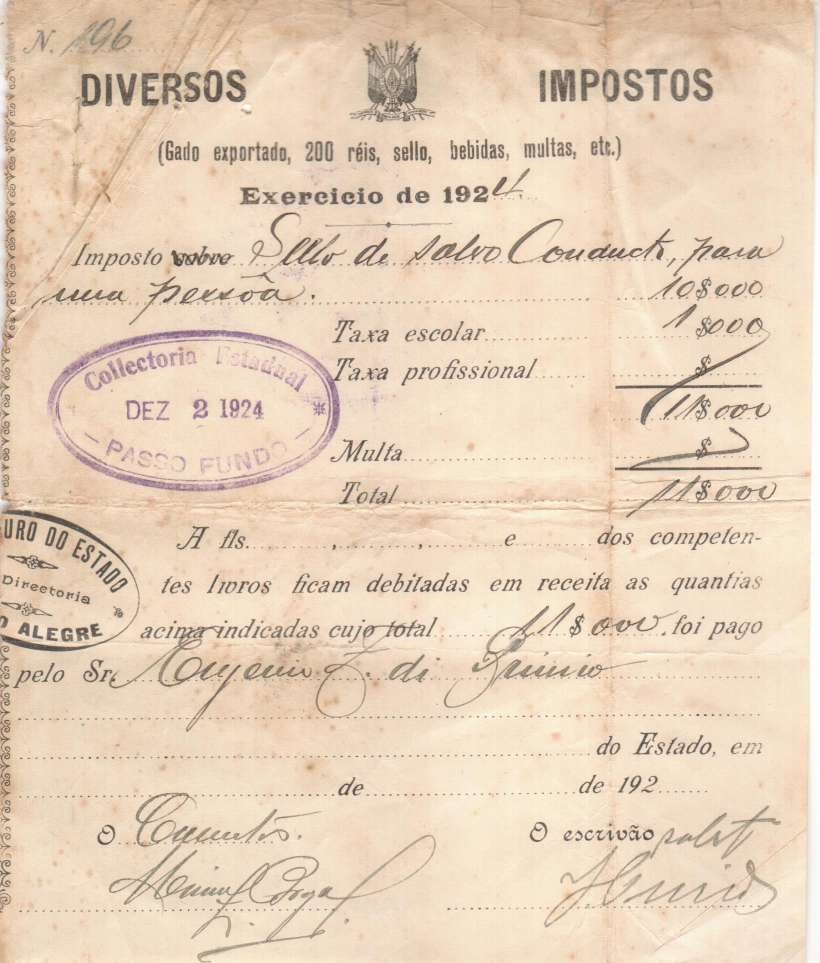 N. 196
DIVERSOS IMPOSTOS
(Gado exportado, 200 réis, sello, bebidas, multas, etc.)
Exercicio de 1924
Imposto sobre Sello de salvo Conducto, para
uma pessôa. 10$000
Taxa escolar 1$000
Taxa profissional $
11$000
Collectoria Estadual
DEZ 2 1924
PASSO FUNDO
Multa $
Total 11$000
URO DO ESTADO
Directoria
O ALEGRE
A fls. , , e dos competen-
tes livros ficam debitadas em receita as quantias
acima indicadas cujo total 11$000, foi pago
pelo Sr. Eugenio F. di Primio
do Estado, em
de de 192
O O escrivão